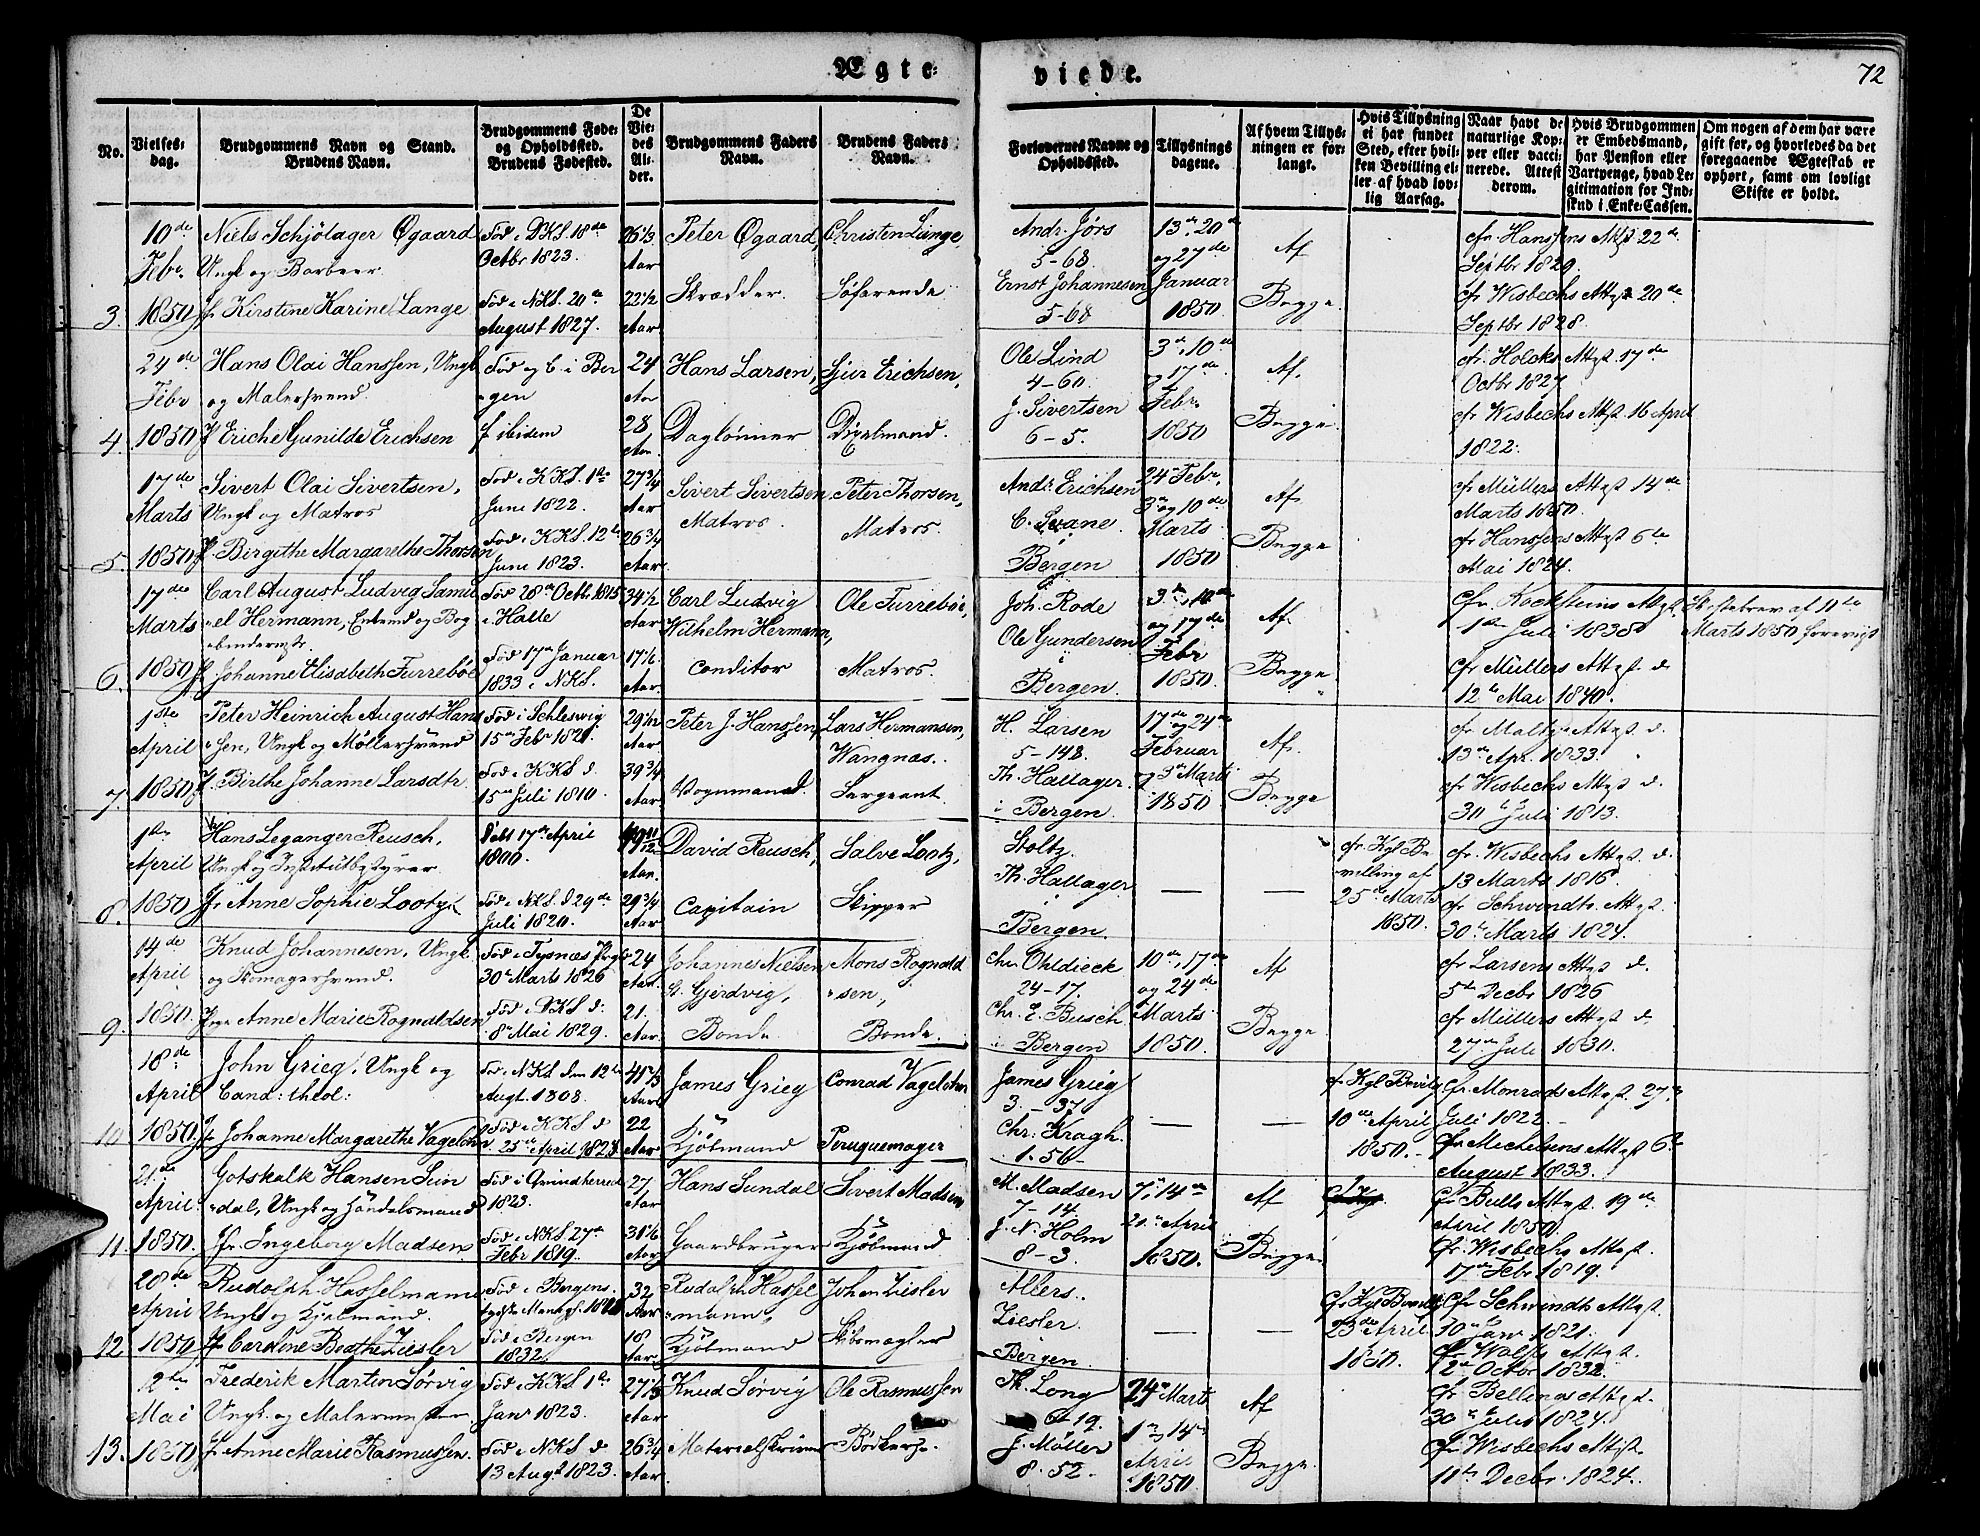 Ægte=
viede.
72
No.
Vielses-
dag.
Brudgommens Navn og Stand.
Brudens Navn.
Brudgommens Føde-
og Opholdssted.
Brudens Fødested.
De
Vie-
des
Al-
der.
Brudgommens Faders
Navn.
Brudens Faders
Navn.
Forlovernes Navne og
Opholdssted.
Tillysnings
dagene.
Af hvem Tillys-
ningen er for-
langt.
Hvis Tillysning
ei har fundet
Sted, efter hvil-
ken Bevilling el-
ler af hvad lov-
lig Aarsag.
Naar havt de
naturlige Kop-
per eller vacci-
nerede. Attest
derom.
Hvis Brudgommen
er Embedsmand,
har Pension eller
Vartpenge, hvad Le-
gitimation for Ind-
skud i Enke-Cassen.
Om nogen af dem har være
gift før, og hvorledes da det
foregaaende Ægteskab er
ophørt, samt om lovligt
Skifte er holdt.
3.
10de
Febr.
1850
Niels Schjötager Øgaard
Ungk og Barbeer
Jf Kirstine Karine Lange
Fød i DKS. 18de
Octbr 1823.
Fød i NKS. 20de
August 1827.
26 1/3
Aar
22 1/2
Aar
Peter Øgaard
Skrædder.
Christen Lange,
Søfarende
Andr. Jörs
5-68.
Ernst Johannesen
5-68
13de 20de
og 27de
Januar
1850.
Af
Begge.
cfr Hanssens Attst 22de
Septbr 1829.
cfr Wisbechs Attst 20de
Septbr 1828.
4.
24de
Febr
1850
Hans Olai Hanssen, Ungk
og Malersvend.
Jf Eriche Gunilde Erichsen
Fød og C. i Ber
gen
f ibidem
24
Aar
28
Aar.
Hans Larsen,
Dagløniner
Sjur Erichsen,
Ole Lind
4-60.
J. Sivertsen
6-5.
3de, 10de
og 17de
Febr.
1850
Af.
Begge
cfr. Holcks Attst 17de
Octbr 1827
cfr Wisbechs Attst 16 April
1822.
5.
17de
Marts
1850
Sivert Olai Sivertsen,
Ungk og Matros
Jf. Birgithe Margarethe Thorsen
Fød i KKS. 1ste
Juni 1822.
Fød i KKS. 12te
Juni 1823.
27 3/4
Aar
26 3/4
Aar.
Sivert Sivertsen
Matros.
Peter Thorsen,
Matros.
Andr. Erichsen
C. Svane
i
Bergen
24 Febr,
3de og 10de
Marts
1850
Af
Begge
cfr Müllers Attst 14de
Marts 1850.
cfr Hanssens Attst 6te
Mai 1824.
6.
17de
Marts
1850
Carl August Ludvig Samu
el Hermann, Enkemd og Bog
bindermstr.
Jf Johanne Elisabeth Furreböe
Fød 28de Octbr 1815
i Halle
Fød 17de Januar
1833 i NKS.
34 1/2
Aar
17 1/6
Aar
Carl Ludvig
Wilhelm Hermann,
Conditor
Ole Furreböe,
Matros.
Joh. Rode
Ole Gundersen
i
Bergen.
3de, 10de
og 17de
Febr
1850.
Af
Begge
Cfr. Kocksteins Attst
1ste Juli 1838.
cfr Müllers Attst d.
12te Mai 1840.
Skiftebrev af 11te
Marts 1850 forevist
7.
1ste
April
1850
Peter Heinrich August Hans
sen, Ungk og Møllersvend
Jf. Birthe Johanne Larsdtr
Fød i Schleswig
15de Febr 1821.
Fød i KKS d.
15de Juli 1810.
29 1/12
Aar
39 3/4
Aar.
Peter J. Hanssen,
Vognmand.
Lars Hermansen,
Wangnæs.
Sergeant.
H. Larsen
5-148.
Th. Hallager
i Bergen.
17de og 24de
Februar
og 3de Marts
1850.
Af.
Begge
cfr Maltzs Attst d.
13de Apr. 1833.
cfr Wisbechs Attst d.
30te Juli 1813.
8.
1ste
April
1850
Hans Leganger Reusch,
Ungk og Institutbestyrer
Jf. Anne Sophie Lootz
Født 17de April
1800.
Fød i NKS. d 29de
Juli 1820.
49 11/12
Aar.
29 3/4
Aar
David Reusch,
Capitain
Salve Lootz,
Skipper
Stoltz.
Th. Hallager
i
Bergen.
—
—
cfr. Kgl Be
villing af
25de Marts
1850.
cfr. Wisbechs Attst. d.
13 Marts 1816.
cfr Schwindts Attst.
30te Marts 1824.
9.
14de
April
1850.
Knud Johannesen, Ungk
og Skomagersvend.
Pige Anne Marie Rognaldsen
Fød i Tysnæs Prgj
30te Marts 1826
Fød i DKS d.
8de Mai 1829.
24
Aar.
21.
Aar.
Johannes Nielsen
Gjerdvig,
Bonde
Mons Rognald
sen,
Bonde.
Chr. Ohldieck
24-17.
Chr. E. Busch
i Bergen
10de, 17de
og 24de
Marts
1850.
Af
Begge
cfr Larsens Attst d.
5te Decbr 1826
cfr Müllers Attst d.
27de Juli 1830.
10
18de
April
1850.
John Grieg, Ungk og
Cand: theol:
Jf Johanne Margarethe Vagelohn
Fød i NKS den 12te
Augt. 1808.
Fød i KKS d
25de April 1828
41 2/3
Aar
22
Aar
James Grieg
Kjöbmand
Conrad Vagelohn
Peruquemager
James Grieg
3.-37
Chr. Kragh.
1-56
—
—
cfr Kgl Bevilg
10de April
1850.
cfr. Monrads Attst. 27de
Juli 1822.
cfr Michelsens Attst 6te
August 1833.
11
21de
April
1850.
Gotskalk Hansen Sun
dal, Ungk og Handelsmand
Jfr. Ingeborg Madsen
Fød i Qvindherred
1823.
Fød i NKS. 27de
Febr 1819.
27
Aar
31 1/6
Aar
Hans Sundal
Gaardbruger
Sivert Madsen
Kjöbmand
M. Madsen
7-14.
J. N. Holm
8-3.
7de, 14de
21de April
1850.
Af
Begge.
cfr Bulls Attst. 19de
April 1850.
cfr. Wisbechs Attst.
17de Febr 1819.
12
28de
April
1850
Rudolph Hasselmann
Ungk og Kjøbmand.
Jf Caroline Beathe Ziesler
Fød i Bergens
tydske Menigh. 18
Fød i Bergen
1832
32
Aar
18
Aar
Rudolph Hassel
mann,
Kjöbmand
Johan Ziesler
Skibsmægler
Allers.
Ziesler.
Bergen.
—
—
cfr Kgl Bevilg
23de April
1850.
cfr Schwindts Attst.
30te Janr 1821.
cfr. Wolffs Attst.
12te Octbr 1832.
13.
12te
Mai
1850
Frederik Martin Sørvig
Ungk. og Malermester
Jf. Anne Marie Rasmussen.
Fød i KKS 1ste
Janr 1823.
Fød i NKS d
13 Augt 1823.
27 1/3
Aar
26 3/4
Aar.
Knud Sørvig
Ole Rasmussen
Bødker
Th. Long
19.
J. Möller
8.52.
24de Marts
1ste og 14de
April
1850
Af
Begge.
cfr Bellings Attst.
30te Juli 1824.
cfr Wisbechs Attst.
11te Decbr. 1824.